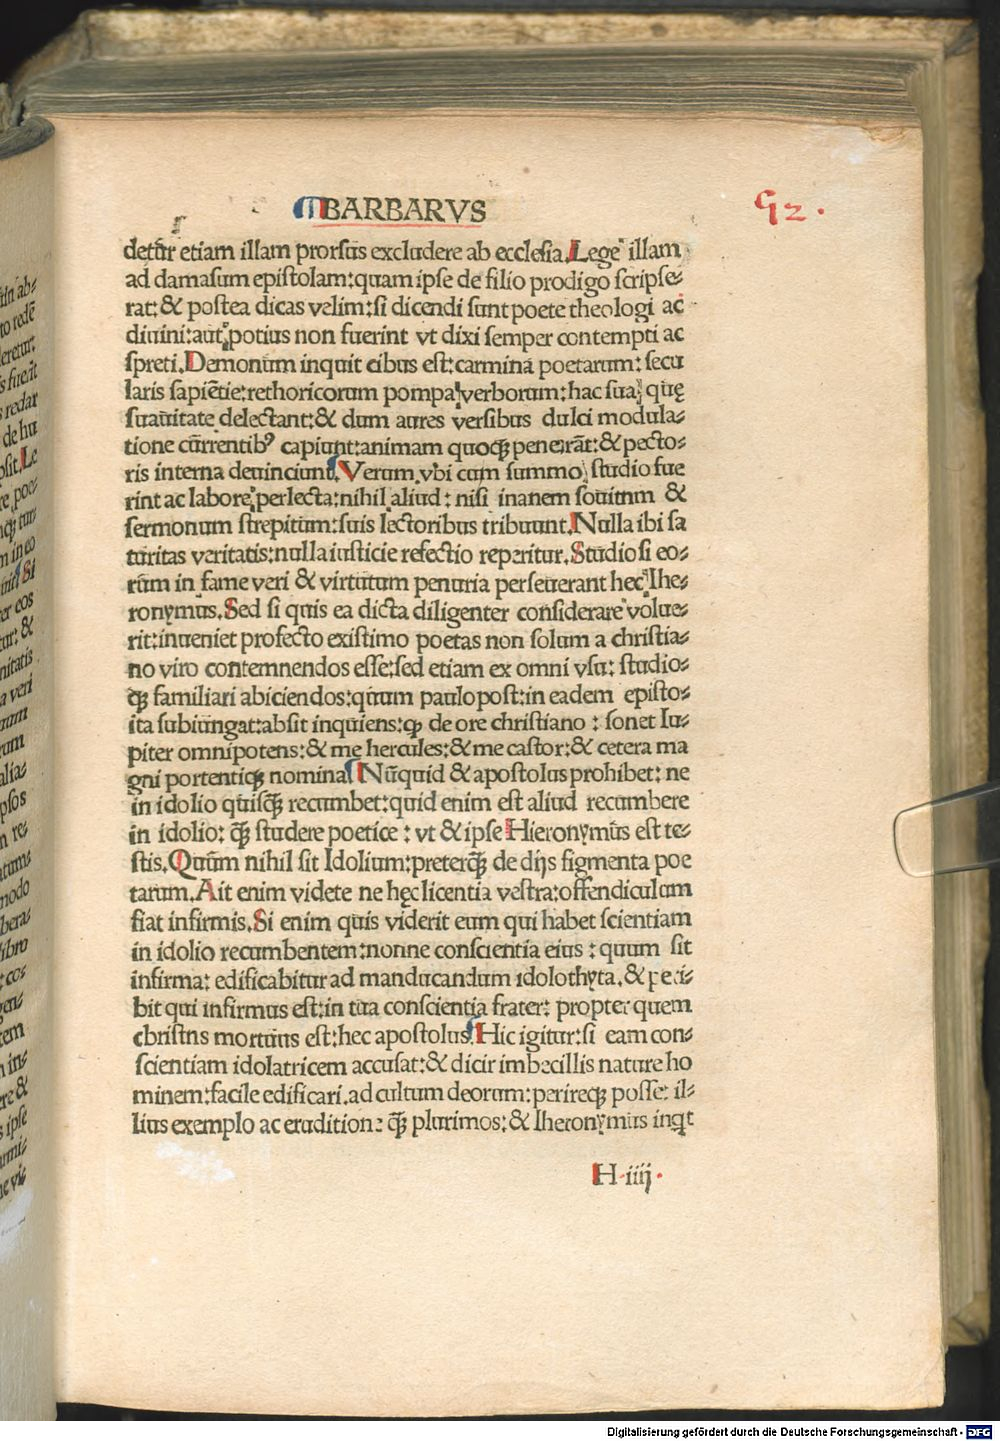 BARBARVS
92.
detur etiam illam prorsus excludere ab ecclesia. Lege illam
ad damasum epistolam: quam ipse de filio prodigo scripse⸗
rat: & postea dicas velim: si dicendi sunt poete theologi ac
diuini: aut potius non fuerint vt dixi semper contempti ac
spreti. Demonum inquit cibus est: carmina poetarum: secu
laris sapiẽtie: rethoricorum pompa verborum: hac sua quę
suauitate delectant: & dum aures versibus dulci modula⸗
tione cũrrentibꝰ capiunt: animam quoqꝫ penetrãt: & pecto⸗
ris interna deuinciunt. Verum vbi cum summo studio fue
rint ac labore perlecta: nihil aliud: nisi inanem souitnm &
sermonum strepitum: suis lectoribus tribuunt. Nulla ibi sa
turitas veritatis: nulla iusticie refectio reperitur. Studiosi eo⸗
rum in fame veri & virtutum penuria perseuerant hec Ihe⸗
ronymus. Sed si quis ea dicta diligenter considerare volue⸗
rit: inueniet profecto existimo poetas non solum a christia⸗
no viro contemnendos esse: sed etiam ex omni vsu: studio⸗
qꝫ familiari abiciendos: quum paulo post: in eadem episto⸗
ita subiungat: absit inquiens: ꝙ de ore christiano: sonet Iu⸗
piter omnipotens: & me hercules: & me castor: & cetera ma
gni portentiqꝫ nomina Nũquid & apostolus prohibet: ne
in idolio quisqꝫ̃ recumbet: quid enim est aliud recumbere
in idolio: qꝫ̃ studere poetice: vt & ipse Hieronymus est te⸗
stis. Quum nihil sit Idolium: preterqꝫ̃ de dijs figmenta poe
tarum. Ait enim videte ne hęc licentia vestra: offendiculum
fiat infirmis. Si enim quis viderit eum qui habet scientiam
in idolio recumbentem: nonne conscientia eius: quum sit
infirma: edificabitur ad manducandum idolothyta. & peri⸗
bit qui infirmus est: in tua conscientia frater: propter quem
christns mortuus est: hec apostolus. Hic igitur: si eam con⸗
scientiam idolatricem accusat: & dicir imbecillis nature ho
minem: facile edificari. ad cultum deorum: perireqꝫ posse: il⸗
lius exemplo ac eruditione qꝫ̃ plurimos: & Iheronymus inqt
H·iiij·
Digitalisierung gefördert durch die Deutsche Forschungsgemeinschaft - DFG